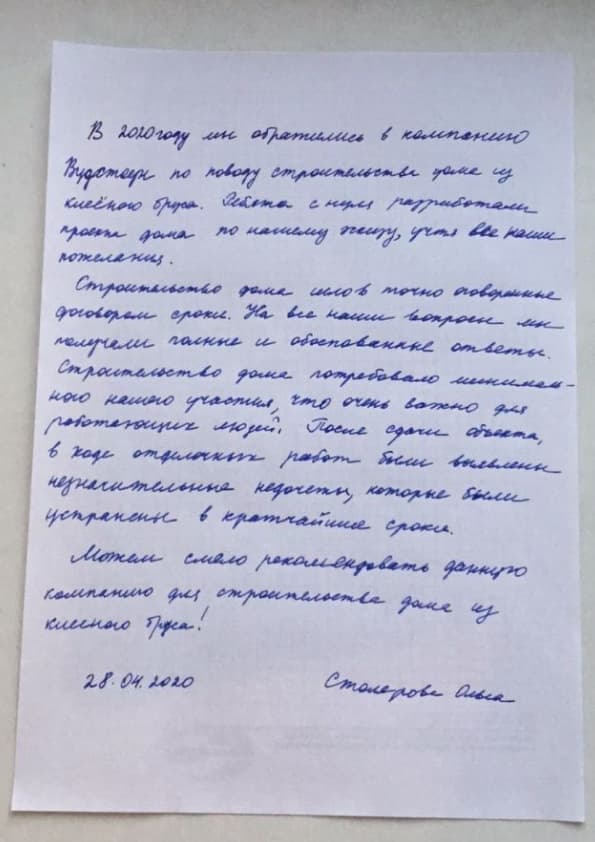 В 2020 году мы обратились в компанию
Вудстаун по поводу строительства дома из
клеёного бруса. Ребята с нуля разработали
проект дома по нашему эскизу, учтя все наши
пожелания.
Строительство дома шло в точно оговоренные
договором сроки. На все наши вопросы мы
получали полные и обоснованные ответы.
Строительство дома потребовало минималь-
ного нашего участия, что очень важно для
работающих людей. После сдачи объекта,
в ходе отделочных работ были выявлены
незначительные недочеты, которые были
устранены в кратчайшие сроки.
Можем смело рекомендовать данную
компанию для строительства дома из
клееного бруса!
28.04.2020 Столерова Ольга